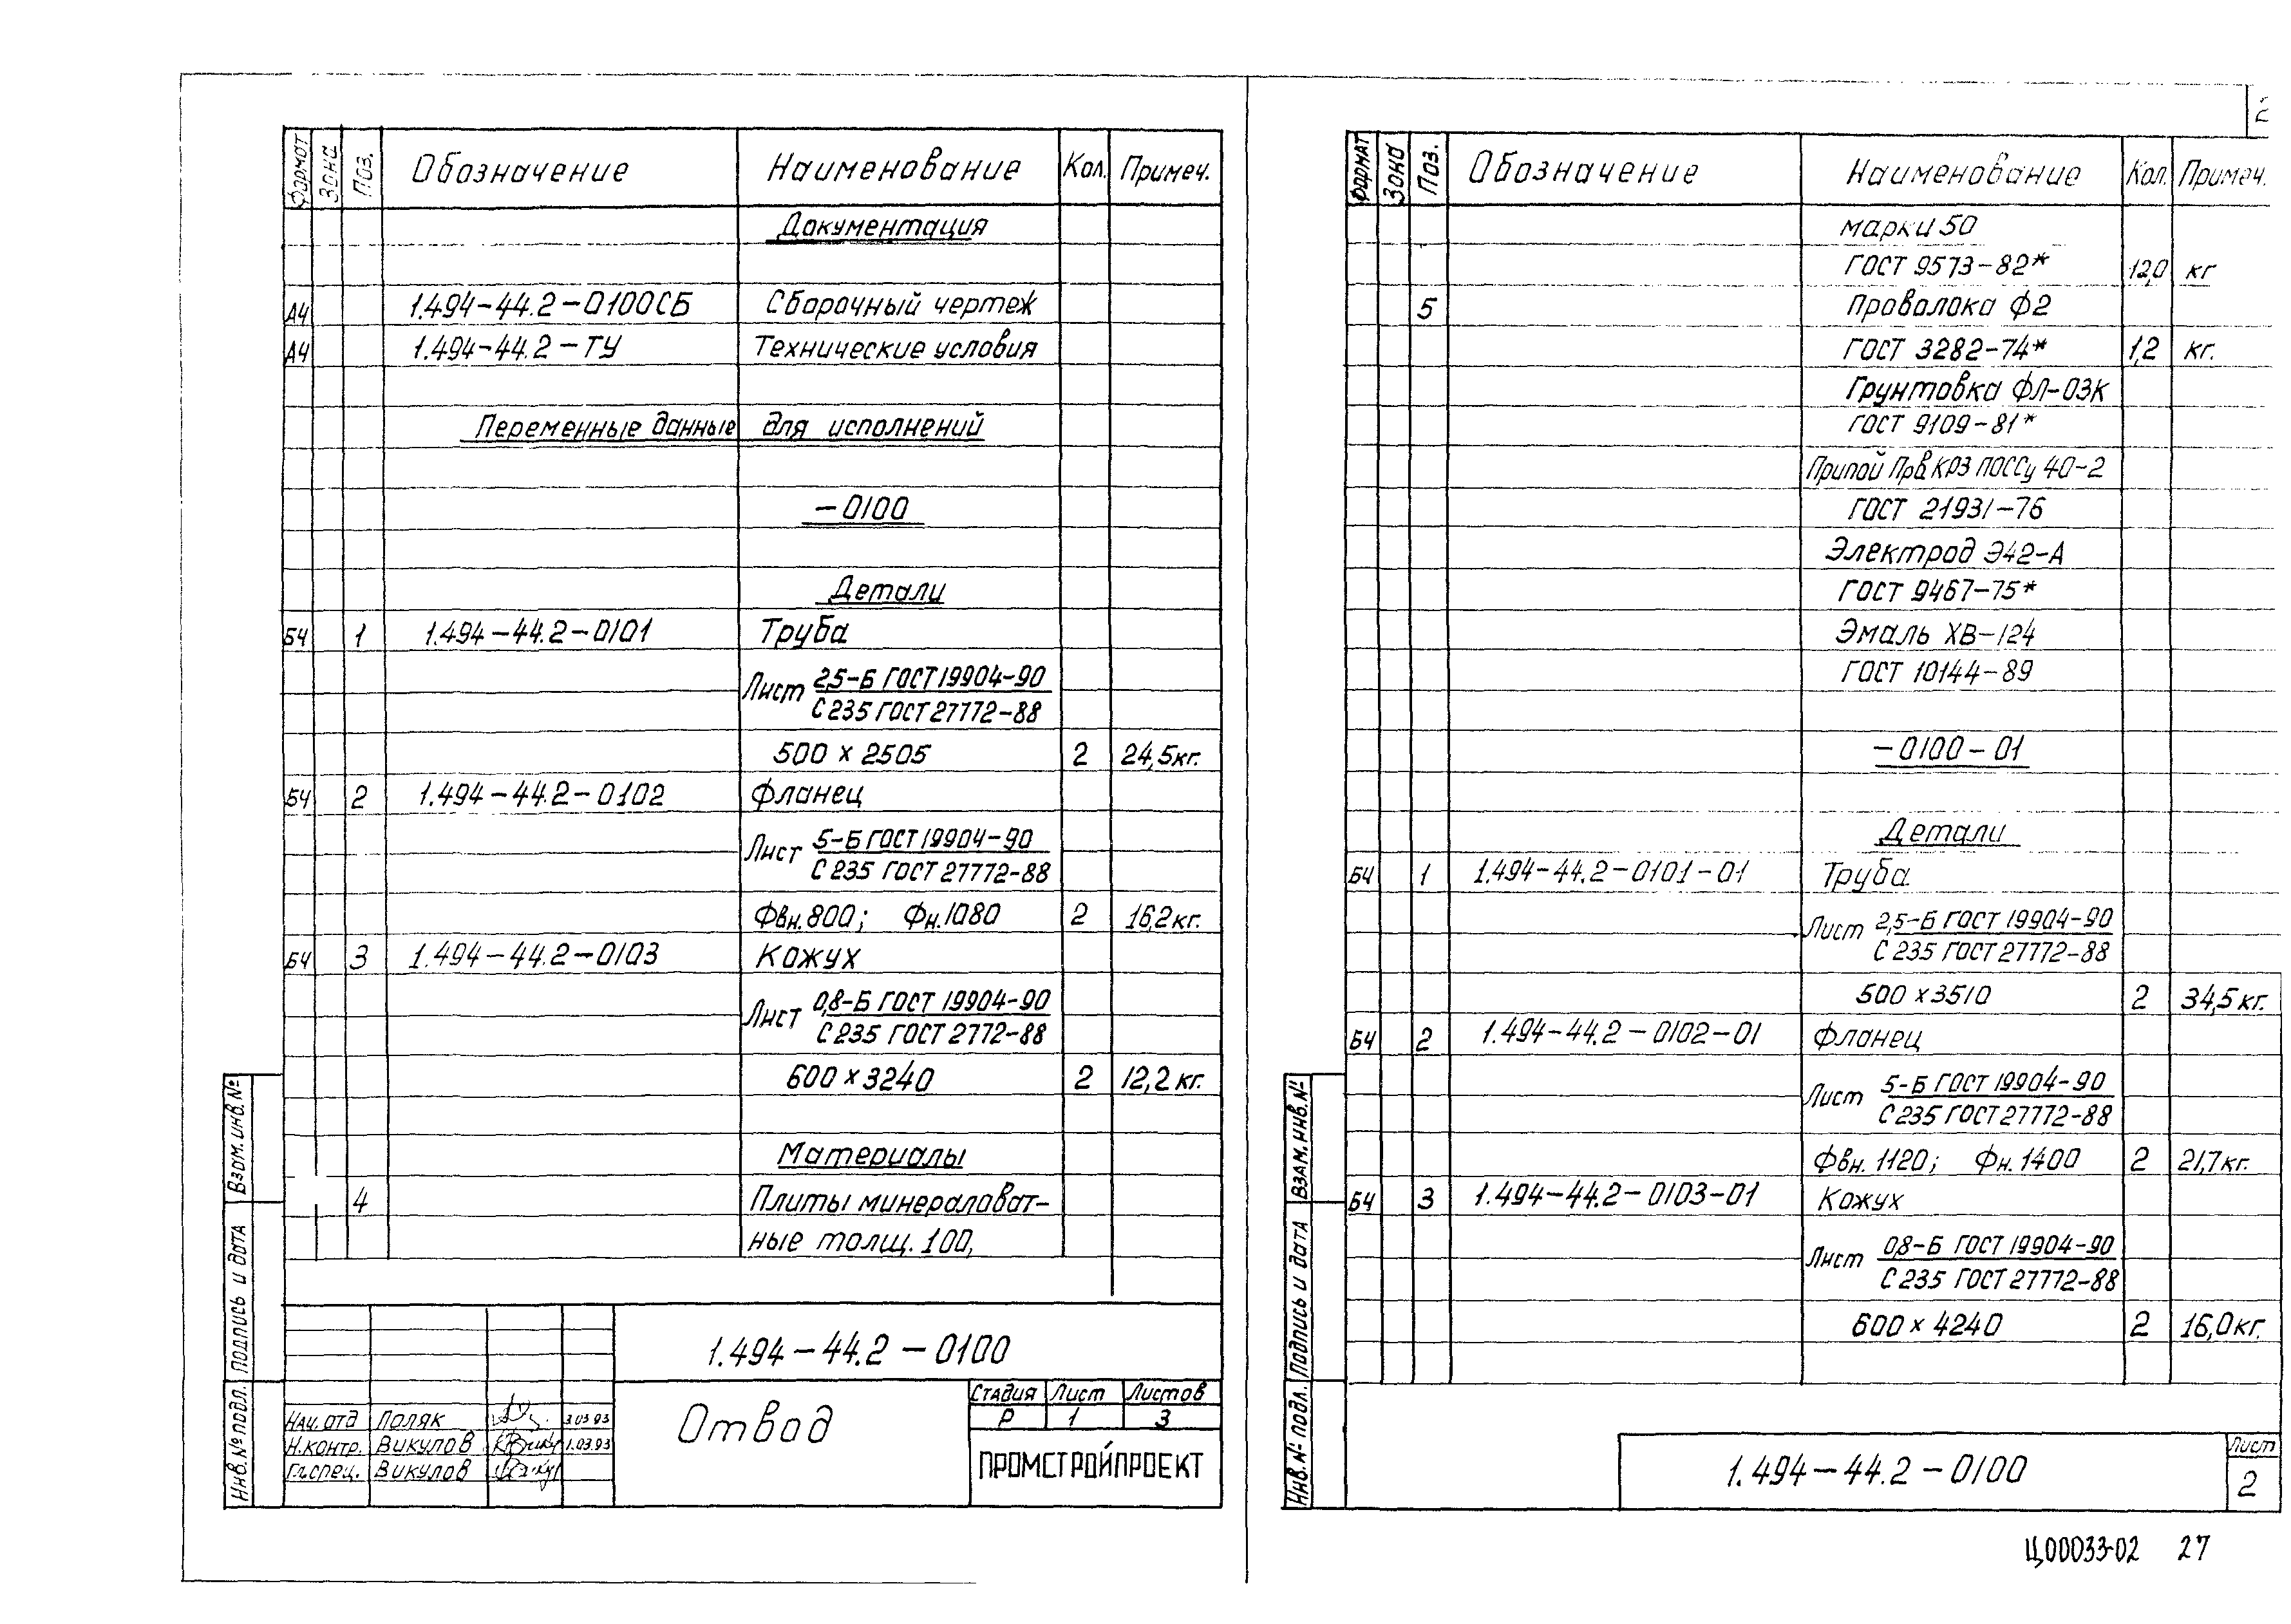 Формат Зона Поз. Обозначение Наименование Кол. Примеч.
Документация
А4 1.494-44.2-0100СБ Сборочный чертеж
А4 1.494-44.2-ТУ Технические условия
Переменные данные для исполнений
-0100
Детали
БЧ 1 1.494-44.2-0101 Труба
Лист 2,5-Б ГОСТ 19904-90
С 235 ГОСТ 27772-88
500 х 2505 2 24,5кг.
БЧ 2 1.494-44.2-0102 Фланец
Лист 5-Б ГОСТ 19904-90
С 235 ГОСТ 27772-88
Фвн. 800; Фн. 1080 2 16,2кг.
БЧ 3 1.494-44.2-0103 Кожух
Лист 0,8-Б ГОСТ 19904-90
С 235 ГОСТ 2772-88
600 х 3240 2 12,2 кг.
Материалы
4 Плиты минераловат-
ные толщ. 100,
1.494-44.2-0100
Отвод
Стадия Лист Листов
Р 1 3
ПРОМСТРОЙПРОЕКТ
Нач. отд Поляк 3.03 93
Н.контр. Викулов 1.03.93
Гл.спец. Викулов
Взам. инв. №
Подпись и дата
Инв. № подл.
2
Формат Зона Поз. Обозначение Наименование Кол. Примеч.
марки 50
ГОСТ 9573-82* 12,0 кг
5 Проволока Ф2
ГОСТ 3282-74* 1,2 кг.
Грунтовка ФЛ-03К
ГОСТ 9109-81*
Припой Прв КРЗ ПОССу 40-2
ГОСТ 21931-76
Электрод Э42-А
ГОСТ 9467-75*
Эмаль ХВ-124
ГОСТ 10144-89
-0100-01
Детали
БЧ 1 1.494-44.2-0101-01 Труба
Лист 2,5-Б ГОСТ 19904-90
С 235 ГОСТ 27772-88
500 х 3510 2 34,5 кг.
БЧ 2 1.494-44.2-0102-01 Фланец
Лист 5-Б ГОСТ 19904-90
С 235 ГОСТ 27772-88
Фвн. 1120; Фн. 1400 2 21,7 кг.
БЧ 3 1.494-44.2-0103-01 Кожух
Лист 0,8-Б ГОСТ 19904-90
С 235 ГОСТ 27772-88
600 х 4240 2 16,0 кг.
1.494-44.2-0100
Лист
2
Взам. инв. №
Подпись и дата
Инв. № подл.
Ц00033-02 27